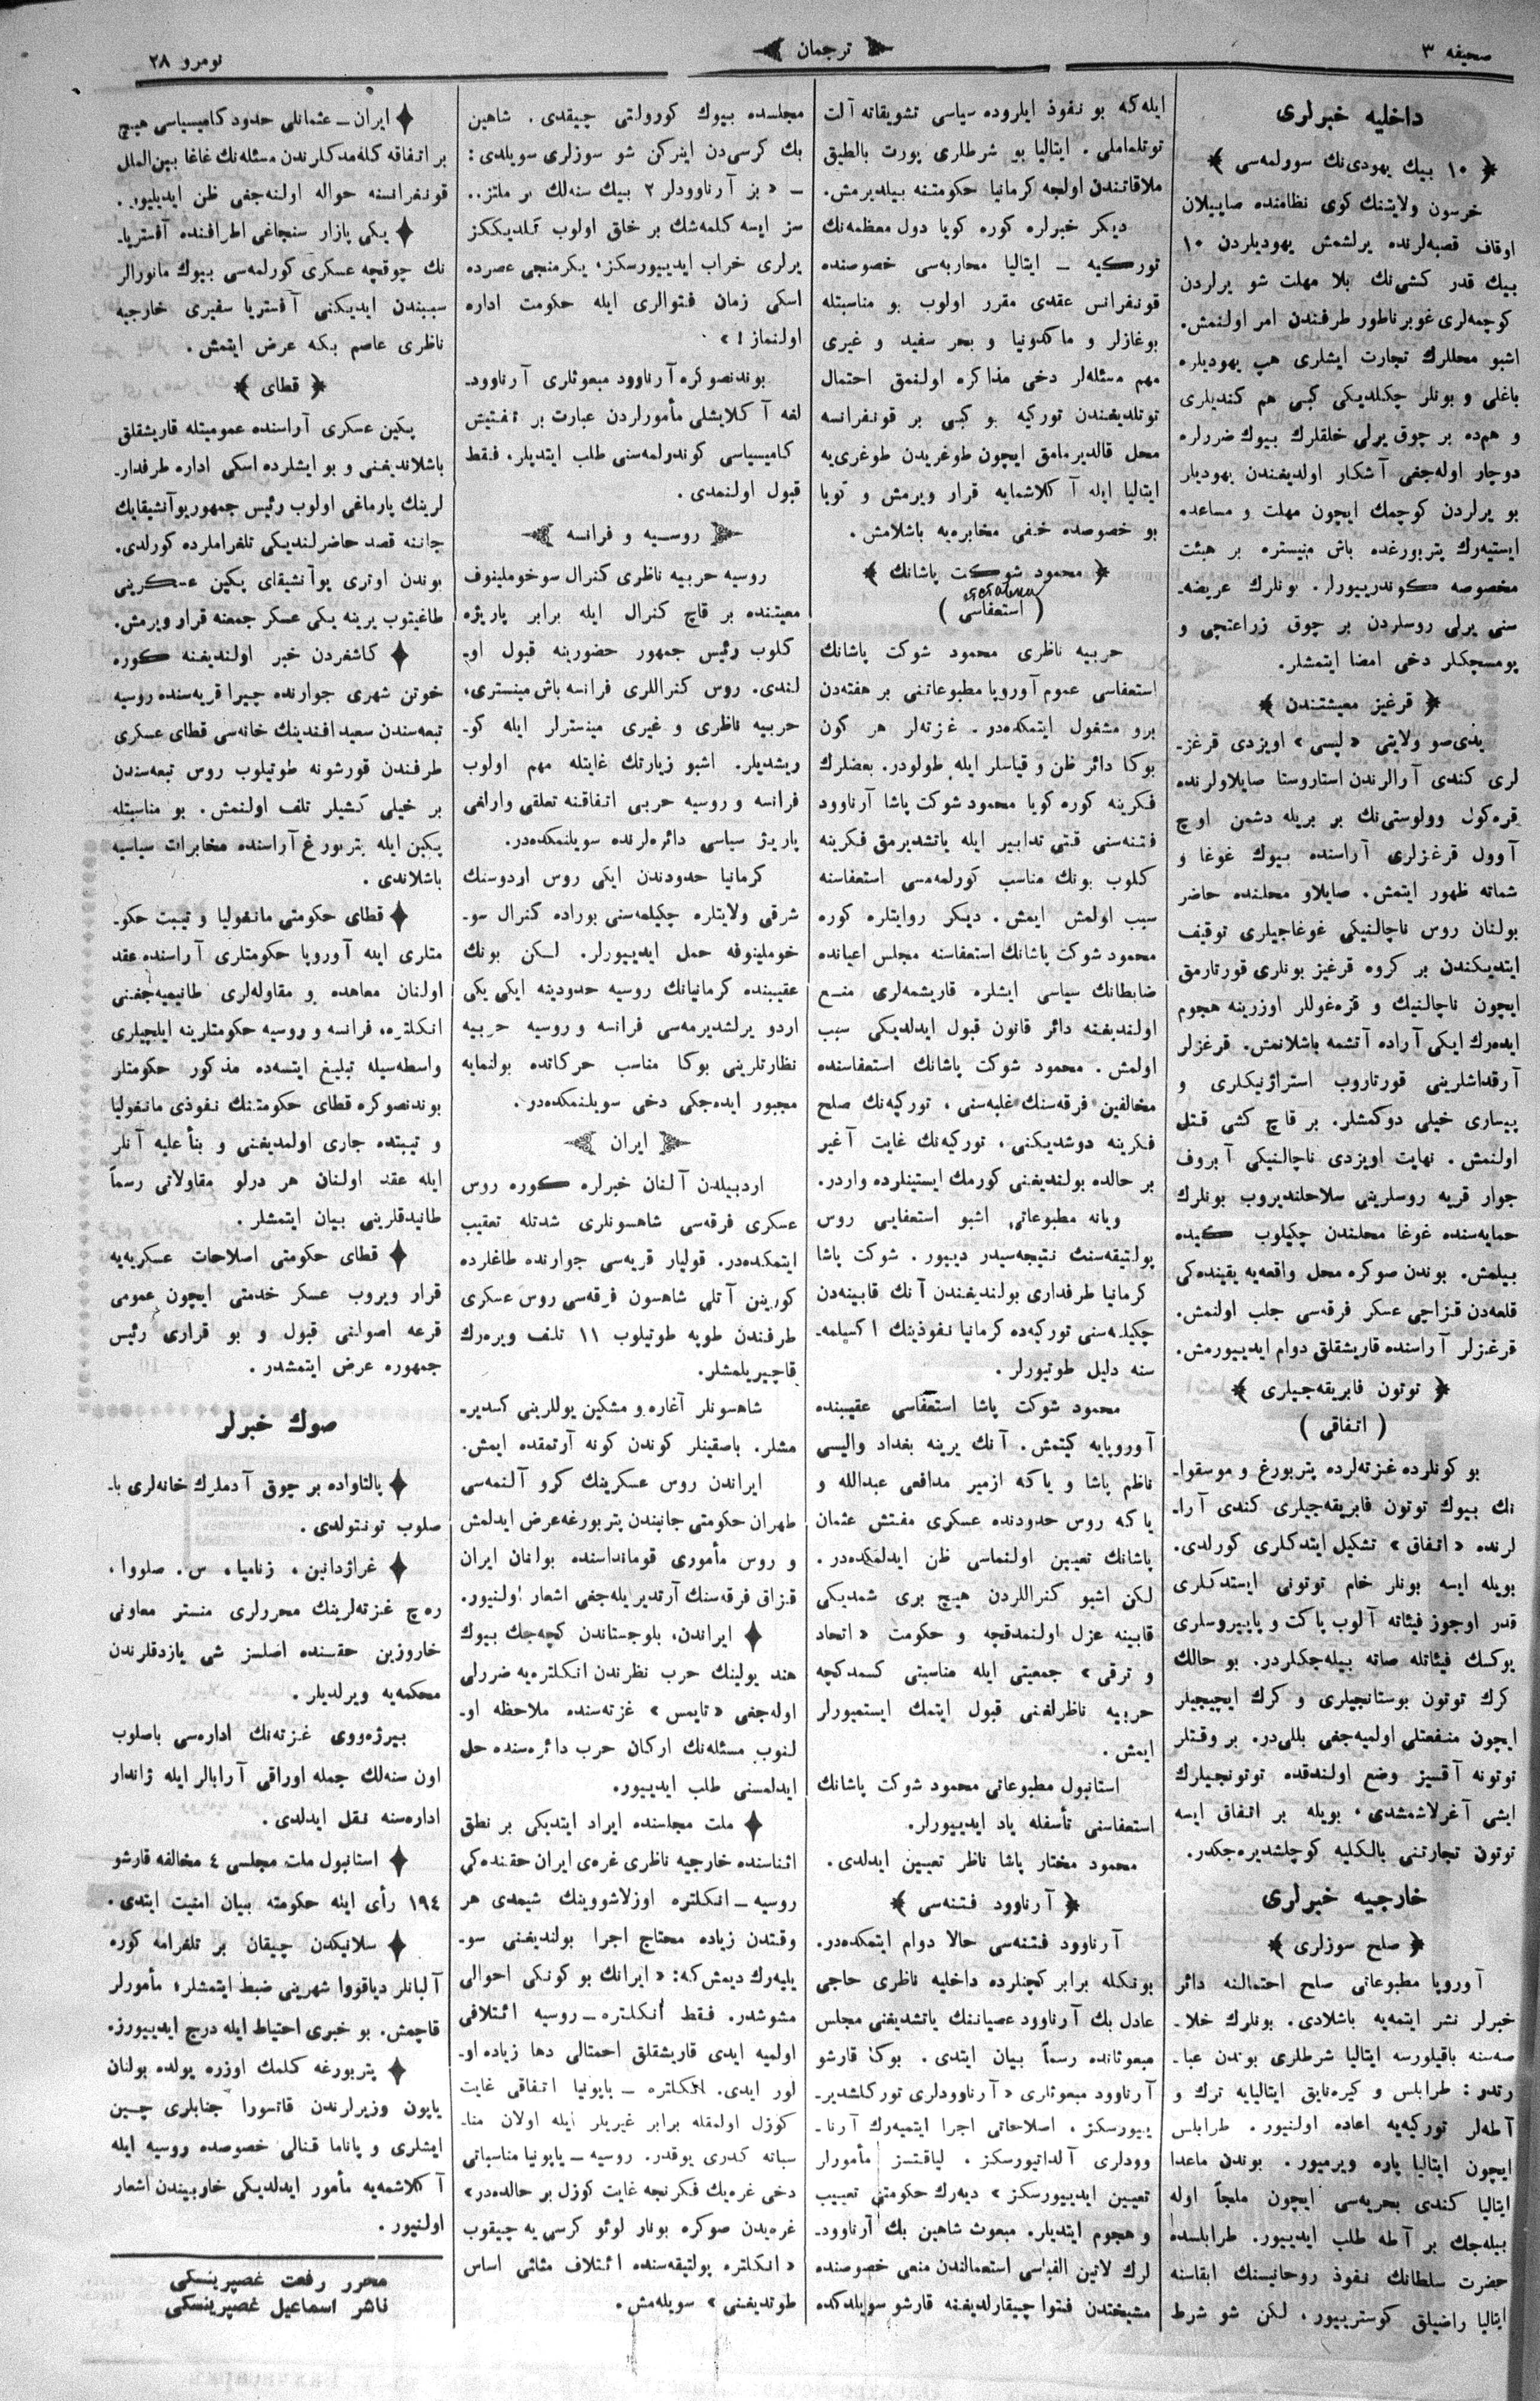 صحيفه ٣
ترجمان
نومرو ٢٨
داخليه خبرلری
١٠ بيك يهودی‌نك سوولمه‌سی
خرسون ولايتنك كوی نظامنده صاييلان
اوقاف قصبه‌لرنده يرلشمش يهوديلردن ١٠
بيك قدر كشی‌نك بلا مهلت شو يرلردن
كوچمه‌لری غوبرناطور طرفندن امر اولنمش.
اشبو محللرك تجارت ايشلری هپ يهوديلره
باغلی و بونلر چكلديكی كبی هم كنديلری
و هم‌ده بر چوق يرلی خلقلرك بيوك ضررلره
دوچار اوله‌جغی آشكار اولديغندن يهوديلر
بو يرلردن كوچمك ايچون مهلت و مساعده
ايستيه‌رك پتربورغده باش منيستره بر هيئت
مخصوصه كوندرييورلر. بونلرك عريضه‌ـ
سنی يرلی روسلردن بر چوق زراعتجی و
پومسچكلر دخی امضا ايتمشلر.
قرغيز معيشتندن
يدی‌صو ولايتی «لپسی» اويزدی قرغزـ
لری كندی آرالرندن استاروستا صايلاولرنده
قره‌كول وولوستی‌نك بر بريله دشمن اوچ
آوول قرغزلری آراسنده بيوك غوغا و
شماته ظهور ايتمش. صايلاو محلنده حاضر
بولنان روس ناچالنيكی غوغاجيلری توقيف
ايتديكندن بر كروه قرغيز بونلری قورتارمق
ايچون ناچالنيك و قره‌غوللر اوزرينه هجوم
ايده‌رك ايكی آراده آتشمه باشلانمش. قرغزلر
آرقداشلرينی قورتاروب استراژنيكلری و
پيساری خيلی دوكمشلر. بر قاچ كشی قتل
اولنمش. نهايت اويزدی ناچالنيكی آبروف
جوار قريه روسلرينی سلاحلنديروب بونلرك
حمايه‌سنده غوغا محلندن چكيلوب كيده
بيلمش. بوندن صوكره محل واقعه‌يه يقينده‌كی
قلعه‌دن قزاچی عسكر فرقه‌سی جلب اولنمش.
قرغزلر آراسنده قاريشقلق دوام ايدييورمش.
توتون فابريقه‌جيلری
( اتفاقی )
بو كونلرده غزته‌لرده پتربورغ و موسقواـ
نك بيوك توتون فابريقه‌جيلری كندی آراـ
لرنده «اتفاق» تشكيل ايتدكلری كورلدی.
بويله ايسه بونلر خام توتونی ايستدكلری
قدر اوجوز فيئاته آلوب پاكت و پاپيروسلری
يوكسك فيئاتله صاته بيله‌جكلردر. بو حالك
كرك توتون بوستانجيلری و كرك ايچيجيلر
ايچون منفعتلی اولميه‌جغی بللی‌در. بر وقتلر
توتونه آقسيز وضع اولندقده توتونجيلرك
ايشی آغرلاشمشدی، بويله بر اتفاق ايسه
توتون تجارتنی بالكليه كوچلشديره‌جكدر.
خارجيه خبرلری
صلح سوزلری
آوروپا مطبوعاتی صلح احتمالنه دائر
خبرلر نشر ايتمه‌يه باشلادی. بونلرك خلاـ
صه‌سنه باقيلورسه ايتاليا شرطلری بوندن عباـ
رتدر: طرابلس و كيره‌نايق ايتاليايه ترك و
آطه‌لر توركيه‌يه اعاده اولنيور. طرابلس
ايچون ايتاليا پاره ويرميور. بوندن ماعدا
ايتاليا كندی بحريه‌سی ايچون ملجأ اوله
بيله‌جك بر آطه طلب ايدييور. طرابلسده
حضرت سلطانك نفوذ روحانيسنك ابقاسنه
ايتاليا راضيلق كوسترييور، لكن شو شرط
ايله‌كه بو نفوذ ايلروده سياسی تشويقاته آلت
توتلماملی. ايتاليا بو شرطلری پورت بالطيق
ملاقاتندن اولجه كرمانيا حكومتنه بيلديرمش.
ديكر خبرلره كوره كويا دول معظمه‌نك
توركيه ـ ايتاليا محاربه‌سی خصوصنده
قونفرانس عقدی مقرر اولوب بو مناسبتله
بوغازلر و ماكدونيا و بحر سفيد و غيری
مهم مسئله‌لر دخی مذاكره اولنمق احتمال
توتلديغندن توركيه بو كبی بر قونفرانسه
محل قالديرمامق ايچون طوغريدن طوغری‌يه
ايتاليا ايله آكلاشمايه قرار ويرمش و كويا
بو خصوصده خفی مخابره‌يه باشلامش.
محمود شوكت پاشانك
( استعفاسی )
حربيه ناظری محمود شوكت پاشانك
استعفاسی عموم آوروپا مطبوعاتنی بر هفته‌دن
برو مشغول ايتمكده‌در. غزته‌لر هر كون
بوكا دائر ظن و قياسلر ايله طولودر. بعضلرك
فكرينه كوره كويا محمود شوكت پاشا آرناوود
فتنه‌سنی قتی تدابير ايله ياتشديرمق فكرينه
كلوب بونك مناسب كورلمه‌مسی استعفاسنه
سبب اولمش ايمش. ديكر روايتلره كوره
محمود شوكت پاشانك استعفاسنه مجلس اعيانده
ضابطانك سياسی ايشلره قاريشمه‌لری منع
اولنديغنه دائر قانون قبول ايدلديكی سبب
اولمش. محمود شوكت پاشانك استعفاسنده
مخالفين فرقه‌سنك غلبه‌سنی، توركيه‌نك صلح
فكرينه دوشديكنی، توركيه‌نك غايت آغير
بر حالده بولنديغنی كورمك ايستينلرده واردر.
ويانه مطبوعاتی اشبو استعفايی روس
پولتيقه‌سنك نتيجه‌سيدر دييور. شوكت پاشا
كرمانيا طرفداری بولنديغندن آنك قابينه‌دن
چكيلمه‌سنی توركيه‌ده كرمانيا نفوذينك اكسيلمه‌ـ
سنه دليل طوتيورلر.
محمود شوكت پاشا استعفاسی عقيبنده
آوروپايه كيتمش. آنك يرينه بغداد واليسی
ناظم پاشا و ياكه ازمير مدافعی عبدالله و
ياكه روس حدودنده عسكری مفتش عثمان
پاشانك تعيين اولنماسی ظن ايدلمكده‌در.
لكن اشبو كنراللردن هيچ بری شمديكی
قابينه عزل اولنمدقجه و حكومت «اتحاد
و ترقی» جمعيتی ايله مناسبتی كسمدكچه
حربيه ناظرلغنی قبول ايتمك ايستميورلر
ايمش.
استانبول مطبوعاتی محمود شوكت پاشانك
استعفاسنی تأسفله ياد ايدييورلر.
محمود مختار پاشا ناظر تعيين ايدلدی.
آرناوود فتنه‌سی
آرناوود فتنه‌سی حالا دوام ايتمكده‌در.
بونكله برابر كچنلرده داخليه ناظری حاجی
عادل بك آرناوود عصياننك ياتشديغنی مجلس
مبعوثانده رسماً بيان ايتدی. بوكا قارشو
آرناوود مبعوثلری «آرناوودلری توركلشديرـ
ييورسكز، اصلاحاتی اجرا ايتميه‌رك آرناـ
وودلری آلداتيورسكز، لياقتسز مأمورلر
تعيين ايدييورسكز» ديه‌رك حكومتی تعييب
و هجوم ايتديلر. مبعوث شاهين بك آرناوودـ
لرك لاتين الفباسی استعمالندن منعی خصوصنده
مشيختدن فتوا چيقارلديغنه قارشو سويلدكده
مجلسده بيوك كورولتی چيقدی. شاهين
بك كرسی‌دن اينركن شو سوزلری سويلدی:
ـ «بز آرناوودلر ٢ بيك سنه‌لك بر ملتز..
سز ايسه كلمه‌شك بر خلق اولوب كلديككز
يرلری خراب ايدييورسكز، يكرمنجی عصرده
اسكی زمان فتوالری ايله حكومت اداره
اولنماز!»
بوندنصوكره آرناوود مبعوثلری آرناوودـ
لغه آكلايشلی مأمورلردن عبارت بر تفتيش
كاميسياسی كوندرلمه‌سنی طلب ايتديلر. فقط
قبول اولنمدی.
روسيه و فرانسه
روسيه حربيه ناظری كنرال سوخوملينوف
معيتنده بر قاچ كنرال ايله برابر پاريژه
كلوب رئيس جمهور حضورينه قبول اوـ
لندی. روس كنراللری فرانسه باش مينستری،
حربيه ناظری و غيری مينسترلر ايله كوـ
ريشديلر. اشبو زيارتك غايتله مهم اولوب
فرانسه و روسيه حربی اتفاقنه تعلقی وارلغی
پاريژ سياسی دائره‌لرنده سويلنمكده‌در.
كرمانيا حدودندن ايكی روس اردوسنك
شرقی ولايتلره چكيلمه‌سنی بوراده كنرال سوـ
خوملينوفه حمل ايدييورلر. لكن بونك
عقيبنده كرمانيانك روسيه حدودينه ايكی يكی
اردو يرلشديرمه‌سی فرانسه و روسيه حربيه
نظارتلرينی بوكا مناسب حركاتده بولنمايه
مجبور ايده‌جكی دخی سويلنمكده‌در.
ايران
اردبيلدن آلنان خبرلره كوره روس
عسكری فرقه‌سی شاهسونلری شدتله تعقيب
ايتمكده‌در. قوليار قريه‌سی جوارنده طاغلرده
كورينن آتلی شاهسون فرقه‌سی روس عسكری
طرفندن طوپه طوتيلوب ١١ تلف ويره‌رك
قاچيريلمشلر.
شاهسونلر آغاره و مشكين يوللرينی كسديرـ
مشلر. باصقينلر كوندن كونه آرتمقده ايمش.
ايراندن روس عسكرينك كرو آلنمه‌سی
طهران حكومتی جانبندن پتربورغه عرض ايدلمش
و روس مأموری قومانداسنده بولنان ايران
قزاق فرقه‌سنك آرتديريله‌جغی اشعار اولنيور.
ايراندن، بلوجستاندن كچه‌جك بيوك
هند يولينك حرب نظرندن انكلتره‌يه ضررلی
اوله‌جغی «تايمس» غزته‌سنده ملاحظه اوـ
لنوب مسئله‌نك اركان حرب دائره‌سنده حل
ايدلمسنی طلب ايدييور.
ملت مجلسنده ايراد ايتديكی بر نطق
اثناسنده خارجيه ناظری غره‌ی ايران حقنده‌كی
روسيه ـ انكلتره اوزلاشووينك شيمدی هر
وقتدن زياده محتاج اجرا بولنديغنی سوـ
يليه‌رك ديمش‌كه: «ايرانك بو كونكی احوالی
مشوشدر. فقط انكلتره ـ روسيه ائتلافی
اولميه ايدی قاريشقلق احتمالی دها زياده اوـ
لور ايدی. انكلتره ـ ياپونيا اتفاقی غايت
كوزل اولمقله برابر غيريلر ايله اولان مناـ
سباته كدری يوقدر. روسيه ـ ياپونيا مناسباتی
دخی غره‌يك فكرنجه غايت كوزل بر حالده‌در»
غره‌يدن صوكره بونار لوئو كرسی‌يه چيقوب
«انكلتره پولتيقه‌سنده ائتلاف مثلثی اساس
طوتديغنی» سويله‌مش.
ايران ـ عثمانلی حدود كاميسياسی هيچ
بر اتفاقه كله‌مدكلرندن مسئله‌نك غاغا بين‌الملل
قونفرانسنه حواله اولنه‌جغی ظن ايديليور.
يكی پازار سنجاغی اطرافنده آفستريا‌ـ
نك چوقچه عسكری كورلمه‌سی بيوك مانورالر
سببندن ايديكنی آفستريا سفيری خارجيه
ناظری عاصم بكه عرض ايتمش.
قطای
پكين عسكری آراسنده عموميتله قاريشقلق
باشلانديغنی و بو ايشلرده اسكی اداره طرفدارـ
لرينك پارماغی اولوب رئيس جمهور يوآنشيقايك
جاننه قصد حاضرلنديكی تلغراملرده كورلدی.
بوندن اوتری يوآنشيقای پكين عسكرينی
طاغيتوب يرينه يكی عسكر جمعنه قرار ويرمش.
كاشغردن خبر اولنديغنه كوره
خوتن شهری جوارنده چيرا قريه‌سنده روسيه
تبعه‌سندن سعيد افندينك خانه‌سی قطای عسكری
طرفندن قورشونه طوتيلوب روس تبعه‌سندن
بر خيلی كشيلر تلف اولنمش. بو مناسبتله
پكين ايله پتربورغ آراسنده مخابرات سياسيه
باشلاندی.
قطای حكومتی مانغوليا و تيبت حكوـ
متلری ايله آوروپا حكومتلری آراسنده عقد
اولنان معاهده و مقاوله‌لری طانيميه‌جغنی
انكلتره، فرانسه و روسيه حكومتلرينه ايلچيلری
واسطه‌سيله تبليغ ايتسه‌ده مذكور حكومتلر
بوندنصوكره قطای حكومتنك نفوذی مانغوليا
و تيبتده جاری اولمديغنی و بنأ عليه آنلر
ايله عقد اولنان هر درلو مقاولاتی رسماً
طانيدقلرينی بيان ايتمشلر.
قطای حكومتی اصلاحات عسكريه‌يه
قرار ويروب عسكر خدمتی ايچون عمومی
قرعه اصولنی قبول و بو قراری رئيس
جمهوره عرض ايتمشدر.
صوك خبرلر
يالتاواده بر چوق آدملرك خانه‌لری باـ
صلوب تونتولدی.
غراژدانين، زناميا، س. صلووا،
ره‌چ غزته‌لرينك محررلری منستر معاونی
خاروزين حقنده اصلسز شی يازدقلرندن
محكمه‌يه ويرلديلر.
بيرژه‌ووی غزته‌نك اداره‌سی باصلوب
اون سنه‌لك جمله اوراقی آرابالر ايله ژاندار
اداره‌سنه نقل ايدلدی.
استانبول ملت مجلسی ٤ مخالفه قارشو
١٩٤ رأی ايله حكومته بيان امنيت ايتدی.
سلانيكدن چيقان بر تلغرامه كوره
آلبانلر دياقووا شهرينی ضبط ايتمشلر؛ مأمورلر
قاچمش. بو خبری احتياط ايله درج ايدييورز.
پتربورغه كلمك اوزره يولده بولنان
ياپون وزيرلرندن قاتسورا جنابلری چين
ايشلری و پاناما قنالی خصوصده روسيه ايله
آكلاشمه‌يه مأمور ايدلديكی خاربيندن اشعار
اولنيور.
محرر رفعت غصپرينسكی
ناشر اسماعيل غصپرينسكی